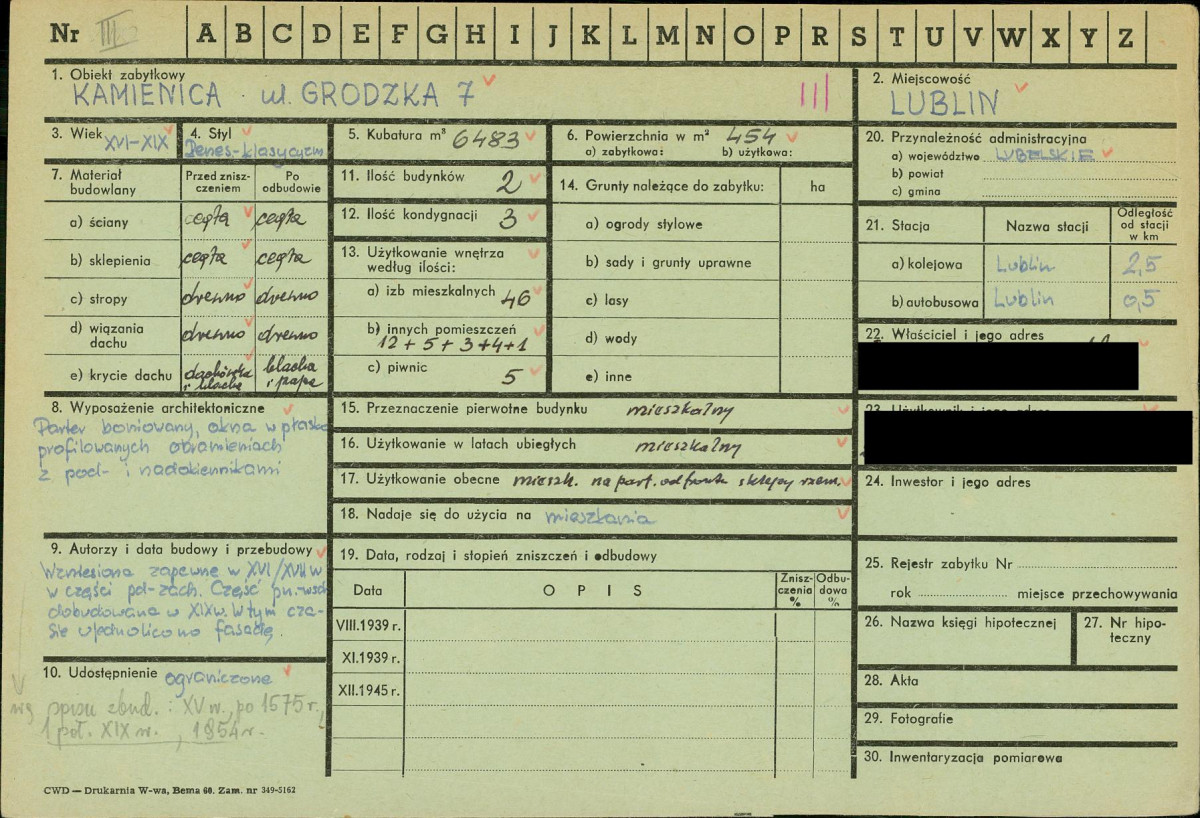 Nr III A B C D E F G H I J K L M N O P R S T U V W X Y Z
1. Obiekt zabytkowy
KAMIENICA ul. GRODZKA 7
III
2. Miejscowość
LUBLIN
3. Wiek
XVI-XIX
4. Styl
Renes-klasycyzm
5. Kubatura m³ 6483
6. Powierzchnia w m² 454
a) zabytkowa: b) użytkowa:
7. Materiał budowlany
Przed zniszczeniem
Po odbudowie
a) ściany cegła cegła
b) sklepienia cegła cegła
c) stropy drewno drewno
d) wiązania dachu drewno drewno
e) krycie dachu dachówka i blacha blacha i papa
8. Wyposażenie architektoniczne
Parter boniowany, okna w płasko
profilowanych obramieniach
z pod- i nadokiennikami
9. Autorzy i data budowy i przebudowy
Wzniesiona zapewne w XVI/XVII w
w części płd-zach. Część pn.-wsch
dobudowana w XIX w. W tym cza-
sie ujednolicono fasadę.
10. Udostępnienie ograniczone
wg spisu zbud. : XV w., po 1575 r.,
1 poł. XIX w. , 1954 r.
11. Ilość budynków 2
12. Ilość kondygnacji 3
13. Użytkowanie wnętrza
według ilości:
a) izb mieszkalnych 46
b) innych pomieszczeń
12 + 5 + 3 + 4 + 1
c) piwnic 5
14. Grunty należące do zabytku: ha
a) ogrody stylowe
b) sady i grunty uprawne
c) lasy
d) wody
e) inne
15. Przeznaczenie pierwotne budynku mieszkalny
16. Użytkowanie w latach ubiegłych mieszkalny
17. Użytkowanie obecne mieszk. na part. od frontu sklepy rzem.
18. Nadaje się do użycia na mieszkania
19. Data, rodzaj i stopień zniszczeń i odbudowy
Data
OPIS
Zniszczenia %
Odbudowa %
VIII.1939 r.
XI.1939 r.
XII.1945 r.
20. Przynależność administracyjna
a) województwo LUBELSKIE
b) powiat
c) gmina
21. Stacja
Nazwa stacji
Odległość od stacji w km
a) kolejowa Lublin 2,5
b) autobusowa Lublin 0,5
22. Właściciel i jego adres
23. Użytkownik i jego adres
24. Inwestor i jego adres
25. Rejestr zabytku Nr
rok miejsce przechowywania
26. Nazwa księgi hipotecznej
27. Nr hipoteczny
28. Akta
29. Fotografie
30. Inwentaryzacja pomiarowa
CWD — Drukarnia W-wa, Bema 60. Zam. nr 349-5162